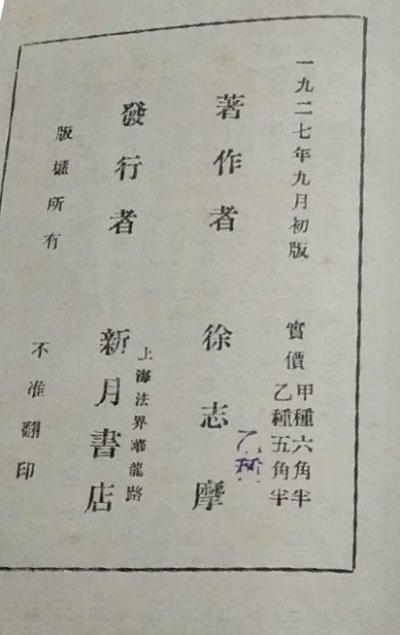 一九二七年九月初版
實價
甲種六角半
乙種五角半
乙種
著作者 徐志摩
發行者 新月書店
上海法界華龍路
版權所有 不准翻印